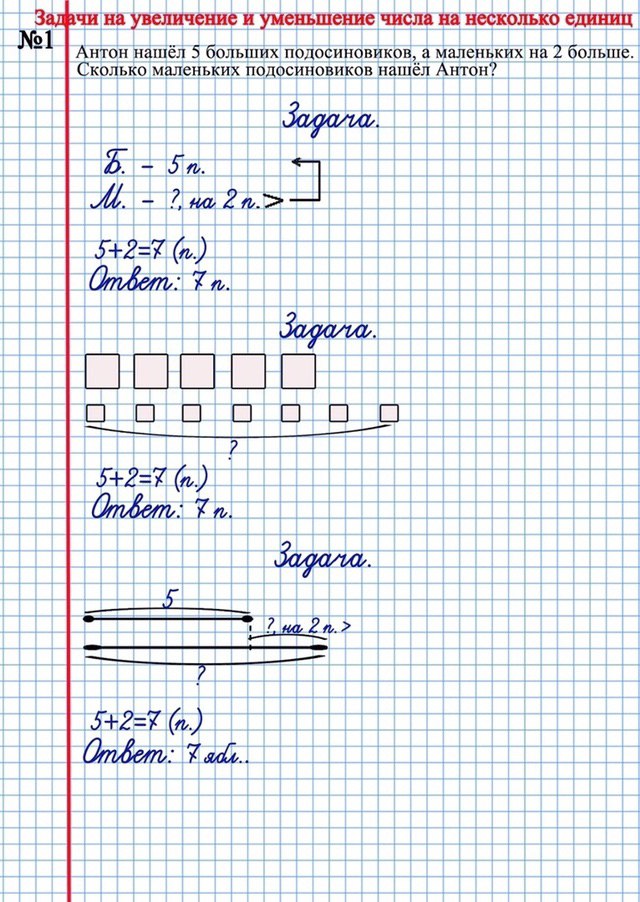 Задачи на увеличение и уменьшение числа на несколько единиц
№1
Антон нашёл 5 больших подосиновиков, а маленьких на 2 больше.
Сколько маленьких подосиновиков нашёл Антон?
Задача.
Б. – 5 п.
М. – ?, на 2 п. >
5+2=7 (п.)
Ответ: 7 п.
Задача.
?
5+2=7 (п.)
Ответ: 7 п.
Задача.
5
?, на 2 п. >
?
5+2=7 (п.)
Ответ: 7 ябл..